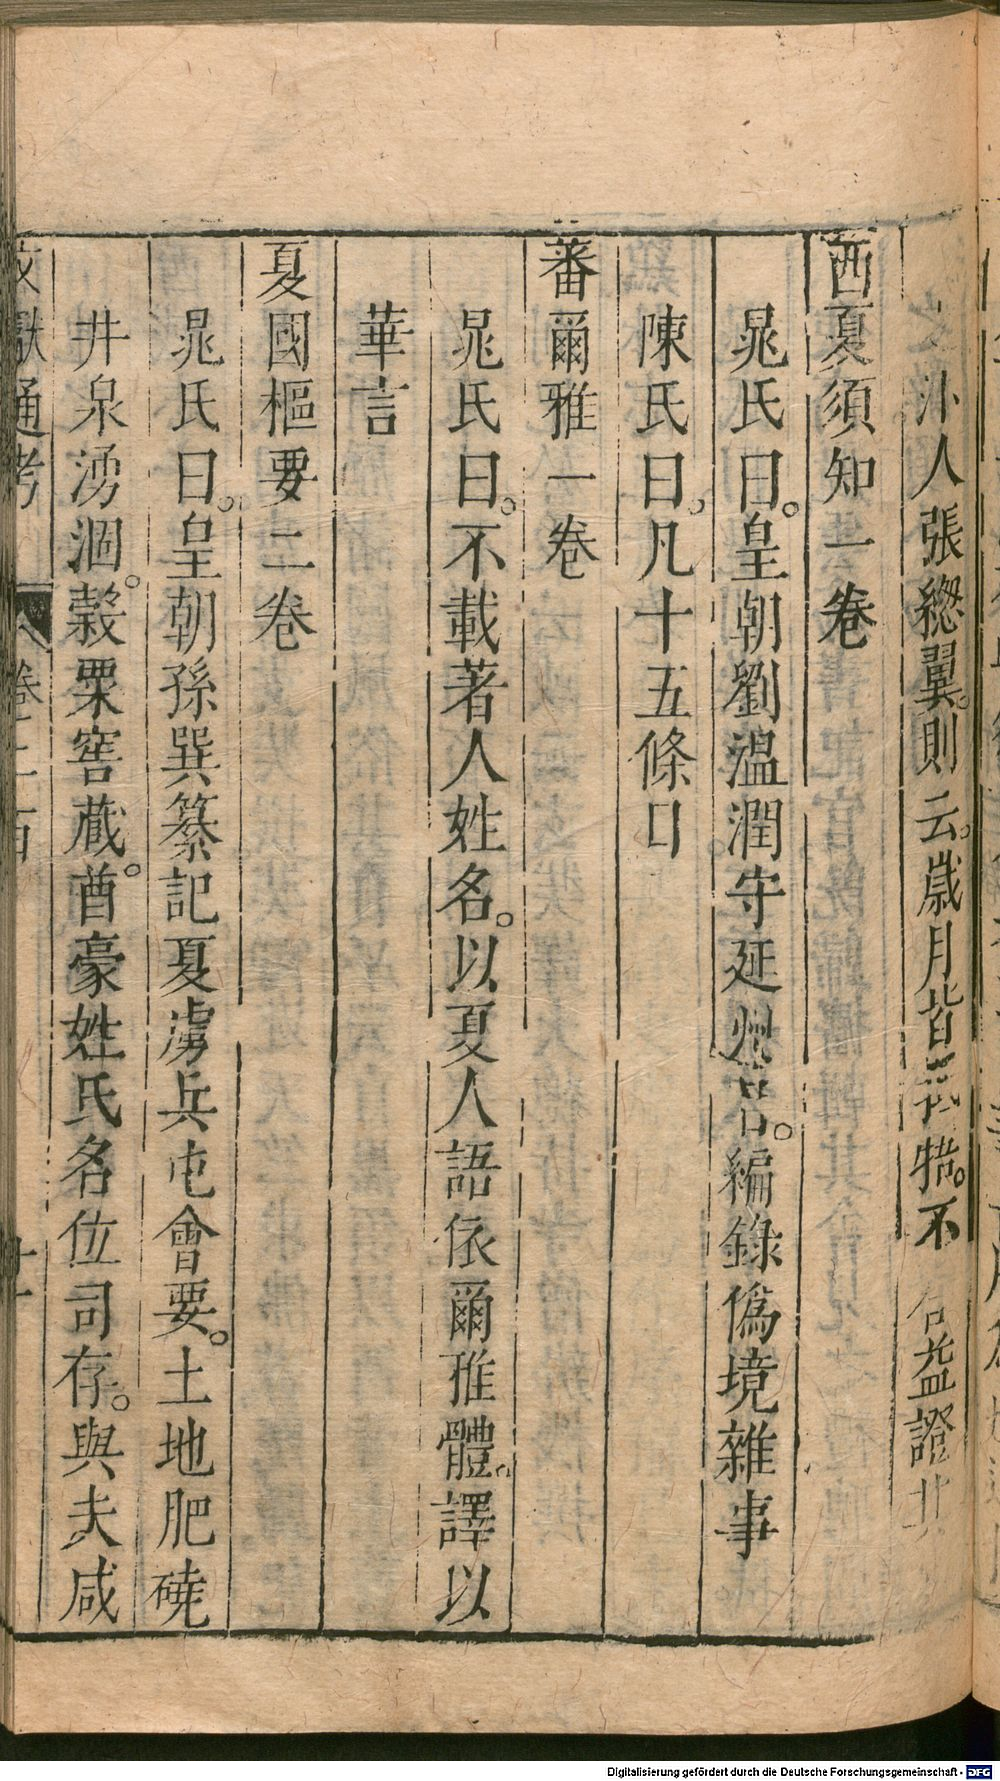 人張緫翼。則云。歲月皆牾。不益證
西夏須知一卷
晁氏曰。皇朝劉温潤守延州日。編錄僞境雜事
陳氏曰。凡十五條
蕃爾雅一卷
晁氏曰。不載著人姓名。以夏人語依爾雅體。譯以
華言
夏國樞要二卷
晁氏曰。皇朝孫巽纂記夏虜兵屯會要。土地肥磽
井泉湧涸。榖粟窖蔵。酋豪姓氏名位司存。與夫咸
文獻通考 卷二百
Digitalisierung gefördert durch die Deutsche Forschungsgemeinschaft - DFG